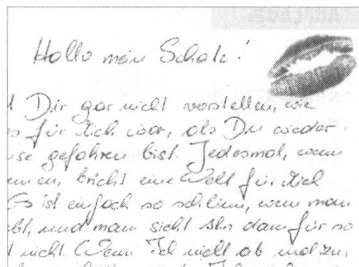 Hallo mein Schatz!
Dir gar nicht vorstellen, wie
für Dich war, als Du wieder
gefahren bist. Jedesmal, wenn
bricht eine Welt für Dich
Es ist einfach so schlimm, wenn man
und man sieht ihn dann für so
nicht. Wenn Ich nicht ab und zu,